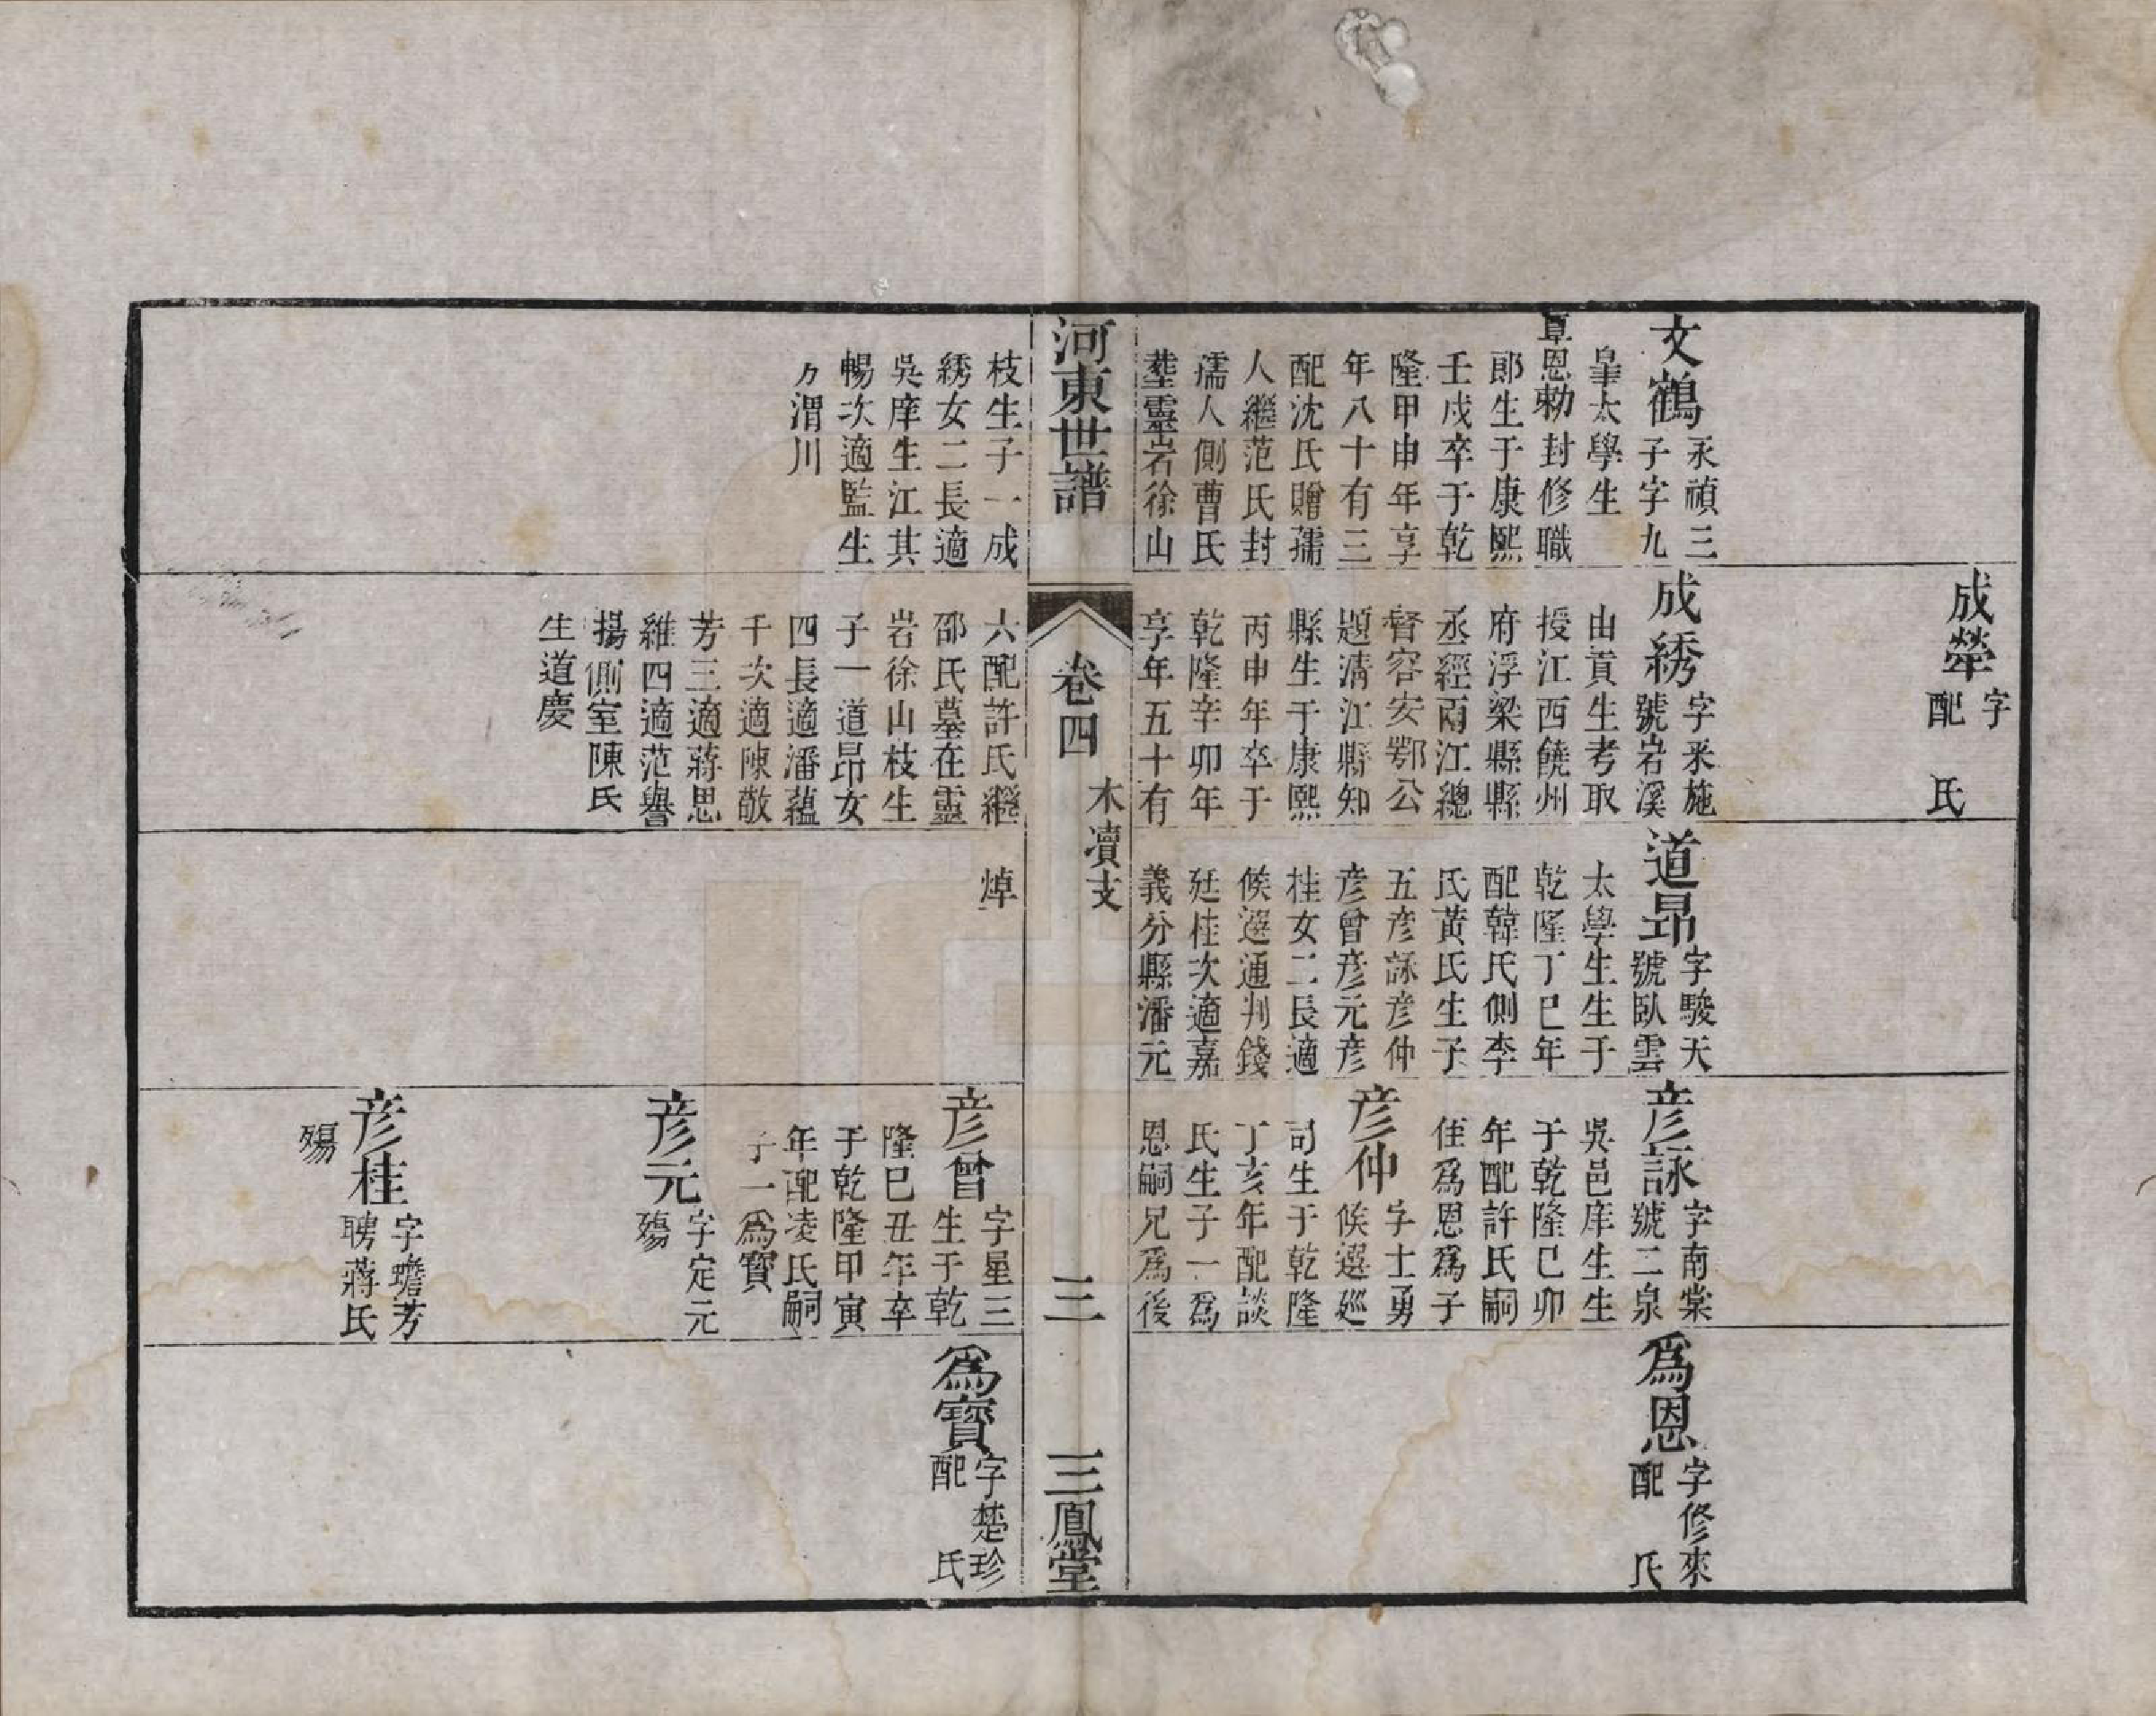 文鶴
永禎三
子字九
皐太學生
覃恩勅封修職
郎生于康熙
壬戌卒于乾
隆甲申年享
年八十有三
配沈氏贈孺
人繼范氏封
孺人側曹氏
塟靈岩徐山
枝生子一成
綉女二長適
吳庠生江其
暢次適監生
方渭川
成犖
字
配 氏
成綉
字釆施
號岩溪
由貢生考取
授江西饒州
府浮梁縣縣
丞經兩江總
督容安鄂公
題清江縣知
縣生于康熙
丙申年卒于
乾隆辛卯年
享年五十有
六配許氏繼
邵氏墓在靈
岩徐山枝生
子一道昻女
四長適潘蘊
千次適陳敬
芳三適蔣思
維四適范譽
揚側室陳氏
生道慶
道昻
字駿天
號臥雲
太學生生于
乾隆丁巳年
配韓氏側李
氏黃氏生子
五彥詠彥仲
彥曾彥元彥
桂女二長適
候選通判錢
廷桂次適嘉
義分縣潘元
焯
彥詠
字南棠
號二泉
吳邑庠生生
于乾隆己卯
年配許氏嗣
侄爲恩爲子
彥仲
字士勇
候選廵
司生于乾隆
丁亥年配談
氏生子一爲
恩嗣兄爲後
彥曾
字星三
生于乾
隆巳丑年卒
于乾隆甲寅
年配凌氏嗣
子一爲寶
彥元
字定元
殤
彥桂
字蟾芳
聘蔣氏
殤
爲恩
字修來
配 氏
爲寶
字楚珍
配 氏
河東世譜
卷四
木凟支
三
三鳳堂